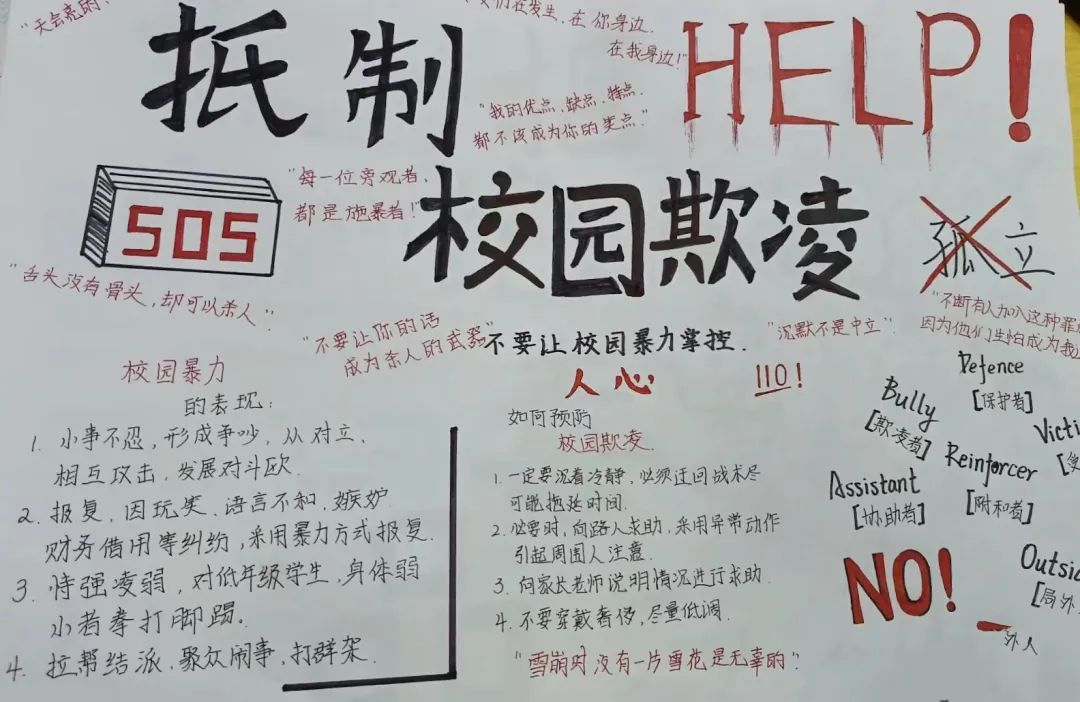 "天会亮的,"
们在发生,在你身边.
在我身边!"
抵制
HELP!
"我的优点、缺点、特点.
都不该成为你的笑点."
SOS
"每一位旁观者,
都是施暴者!"
校园欺凌
孤立
"舌头没有骨头,却可以杀人".
"不要让你的话
成为杀人的武器"
不要让校园暴力掌控.
人心
"沉默不是中立".
"不断有人加入这种罪
因为他们生怕成为
110!
校园暴力
的表现:
1. 小事不忍,形成争吵,从对立、
相互攻击,发展对斗欧.
2. 报复、因玩笑、语言不和、嫉妒
财务借用等纠纷,采用暴力方式报复.
3. 恃强凌弱,对低年级学生,身体弱
小者拳打脚踢.
4. 拉帮结派、聚众闹事,打群架.
如何预防
校园欺凌.
1. 一定要沉着冷静,必须迂回战术尽
可能拖延时间.
2. 必要时,向路人求助,采用异常动作
引起周围人注意.
3. 向家长老师说明情况进行求助.
4. 不要穿戴奢侈,尽量低调.
"雪崩时没有一片雪花是无辜的".
Defence
[保护者]
Bully
[欺凌者]
Victi
Reinforcer
[附和者]
Assistant
[协助者]
NO!
Outsid
[局外
外人